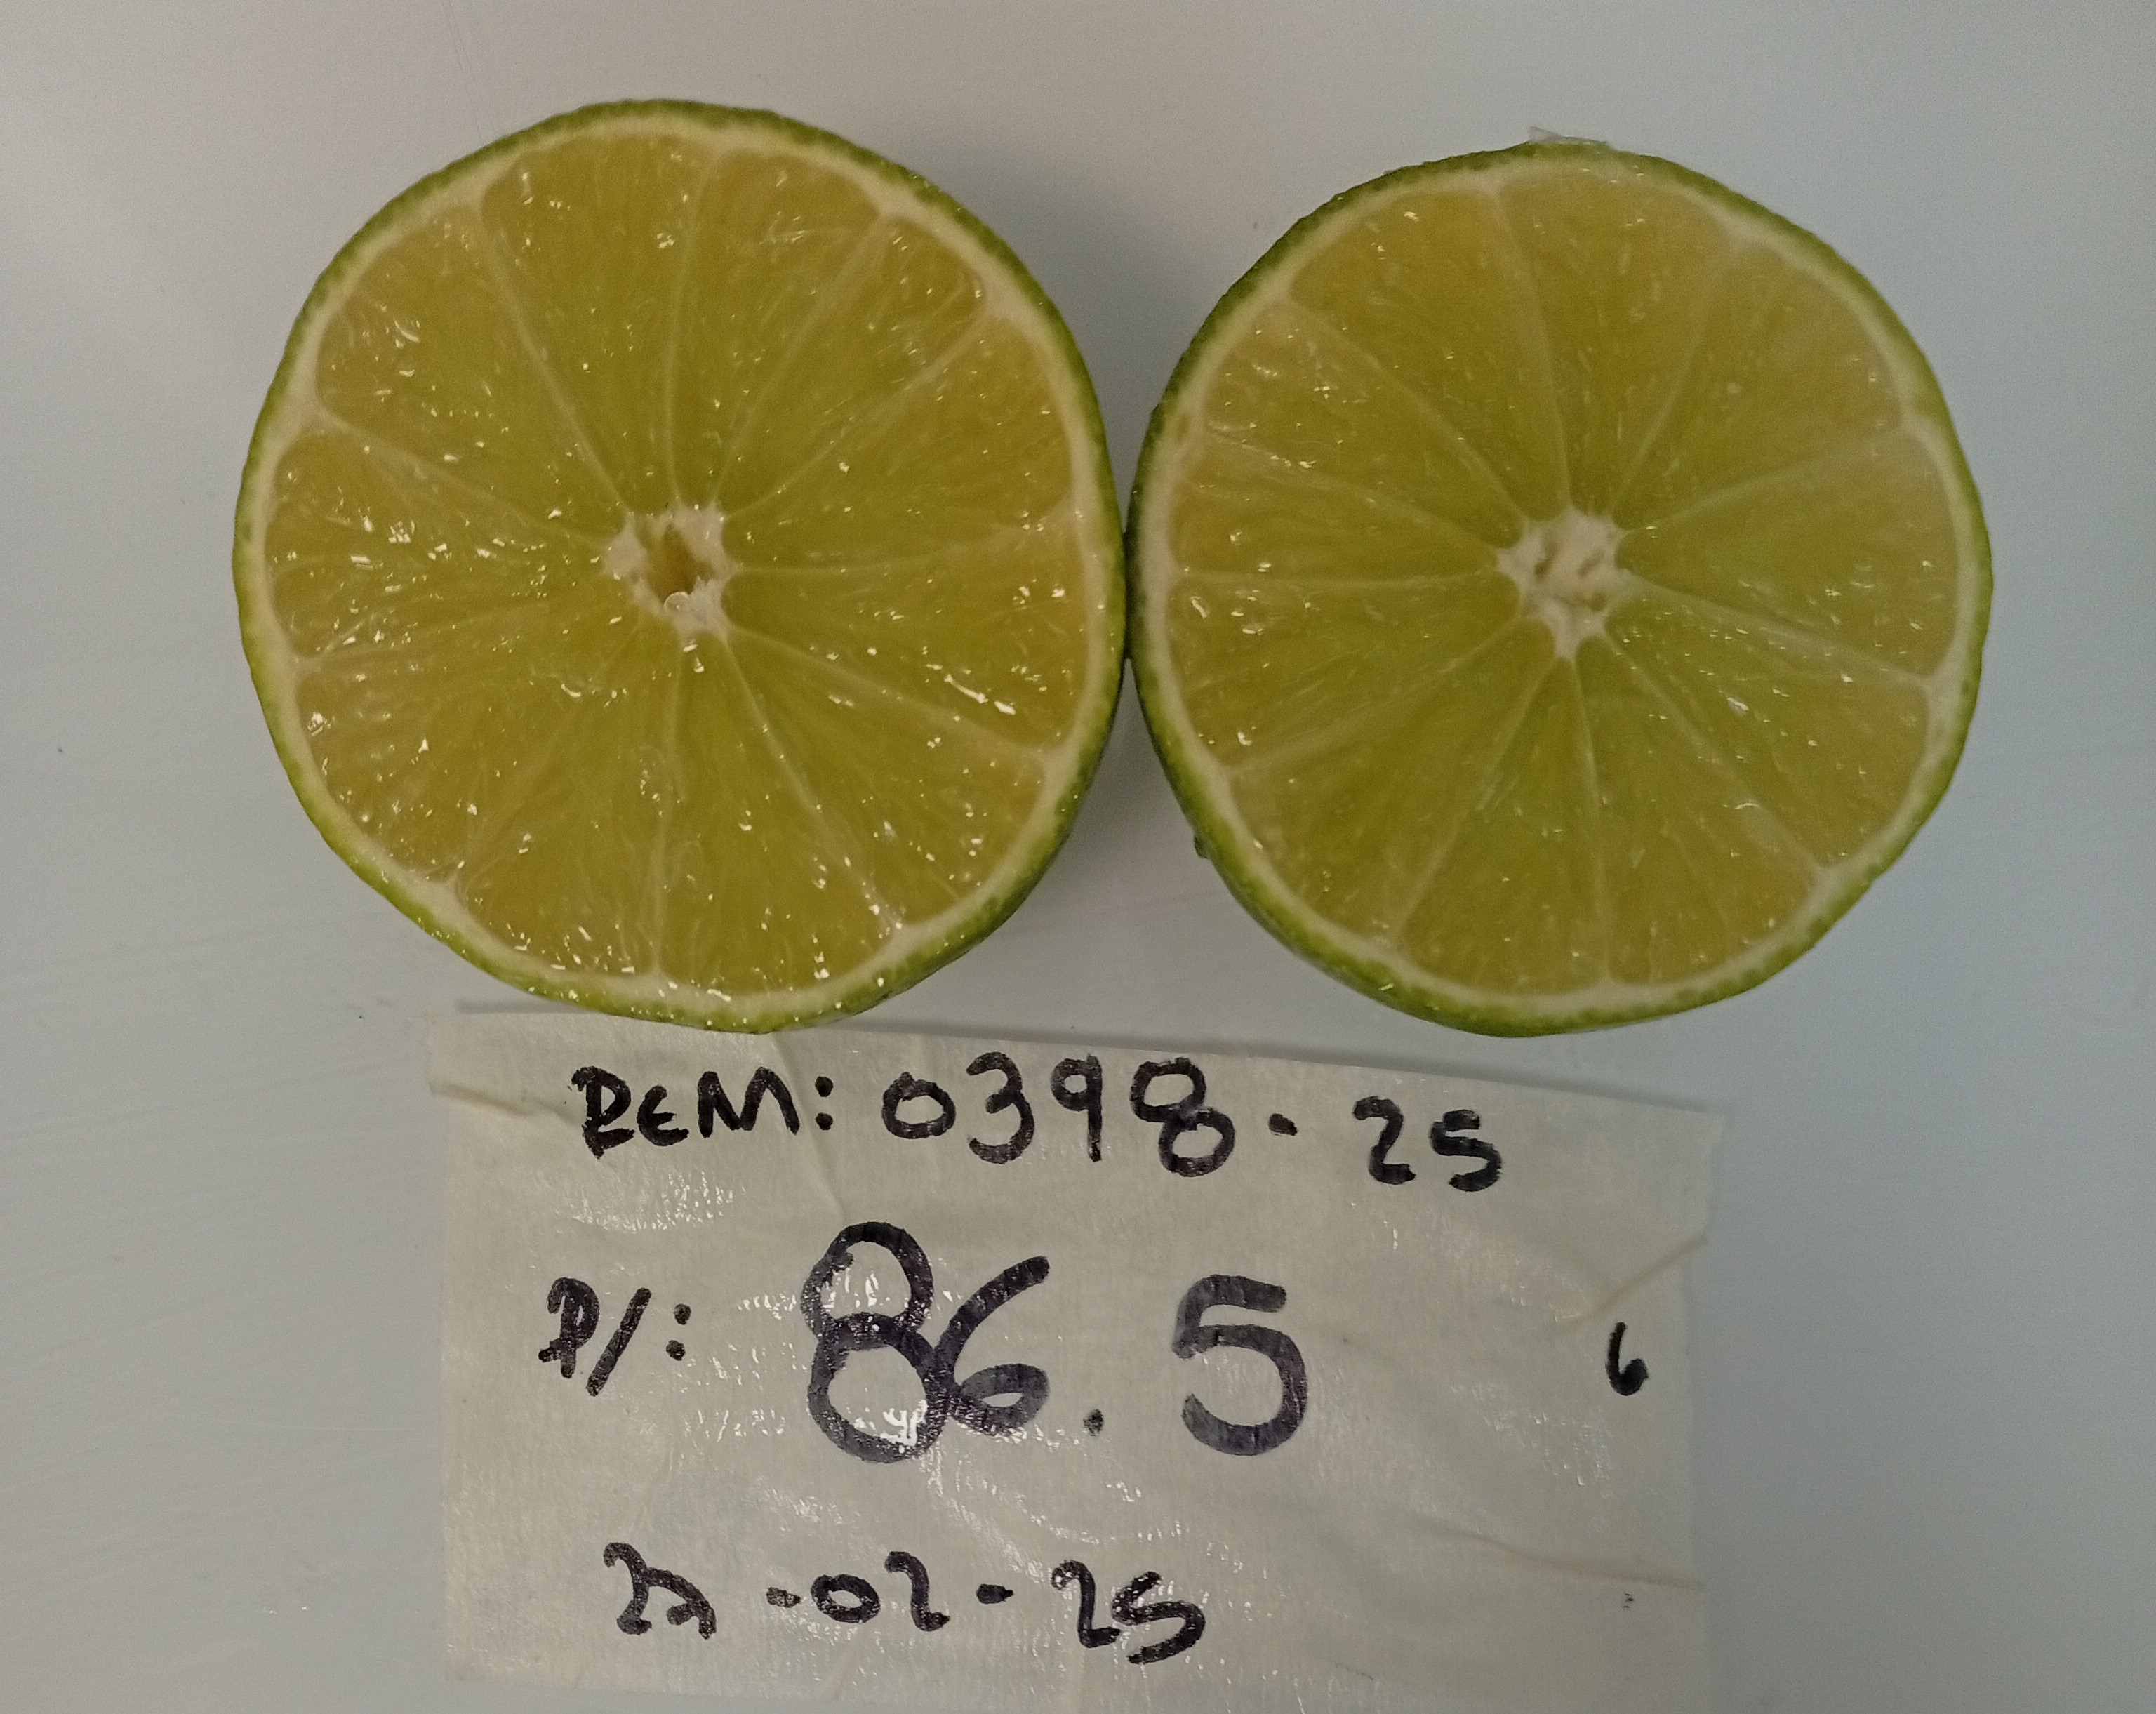 REM: 0398-25
P/: 86.5 6
27-02-25